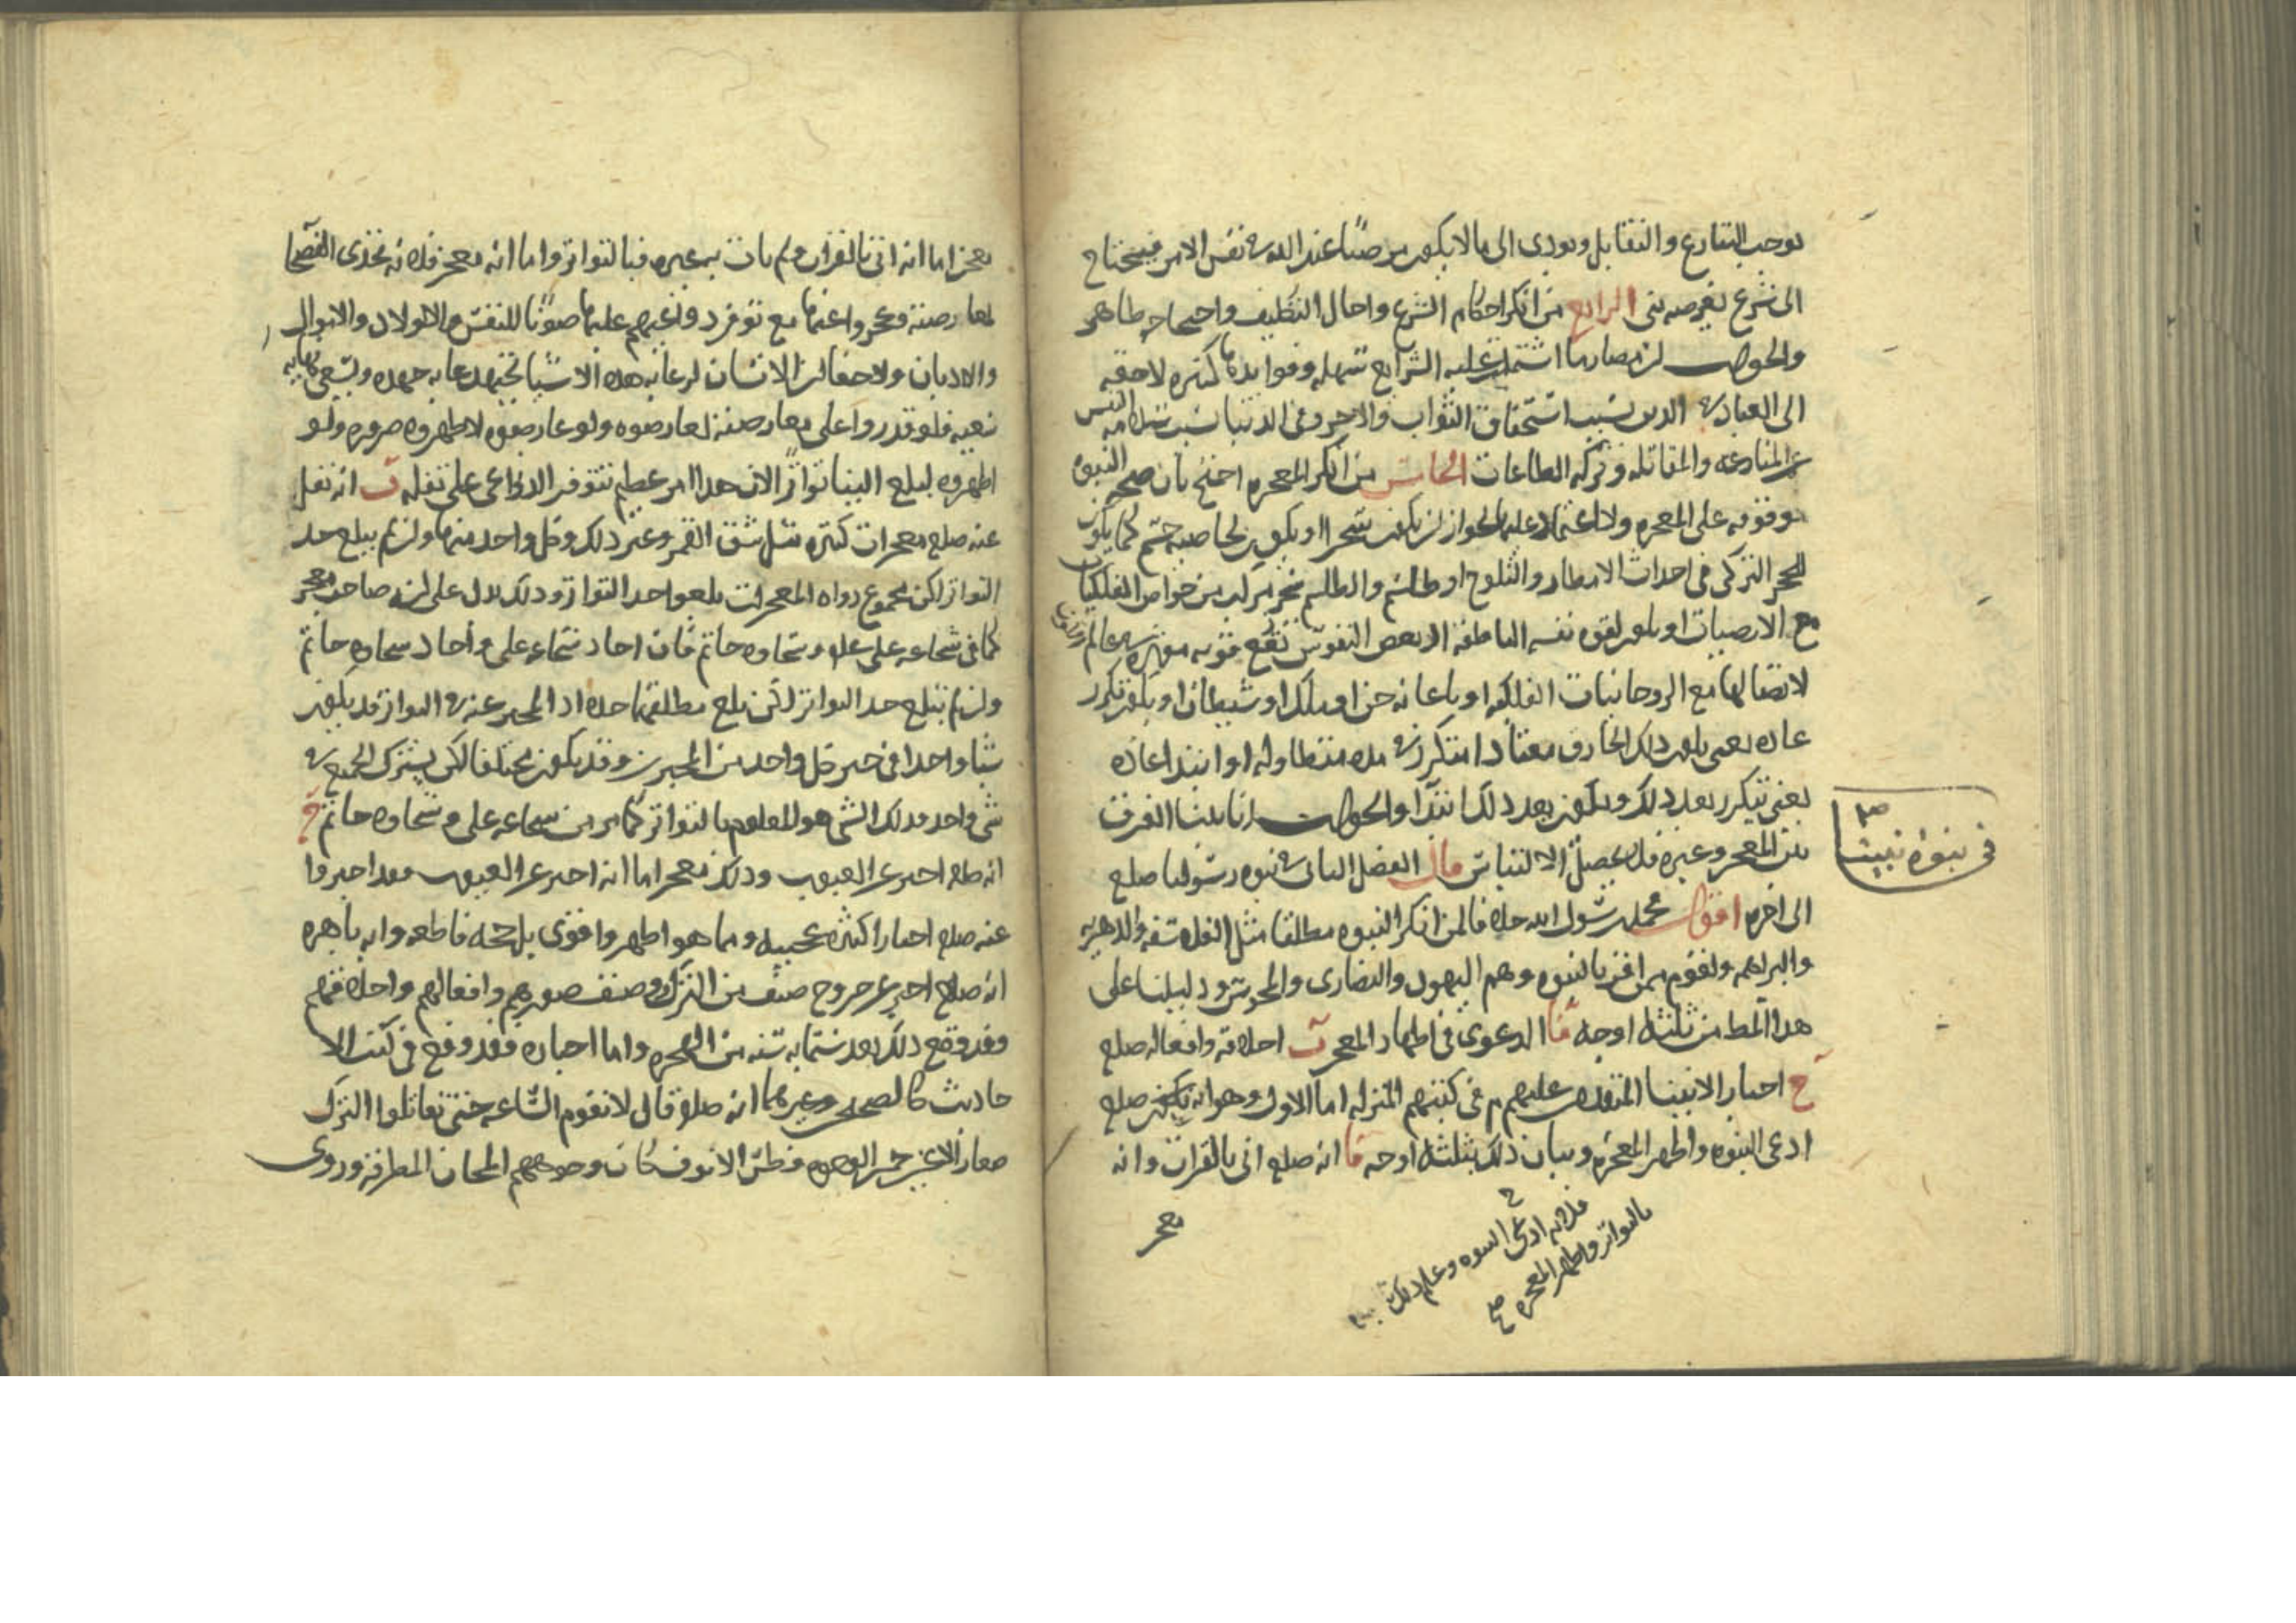 يوجب التنازع والتقابل ويودى الى ما لا يكون مرضيا عند الله فى نفس الامر فيحتاج
الى شرع يفرضه نبى الرابع من انكر احكام الشرع واحال التكليف واحتجاجه ظاهر
والجواب ان مضار ما اشتملت عليه الشرايع سهله وفوايدها كثيره لاحقه
الى العباد فى الدين بسبب استحقاق الثواب والاجر وفى الدنيا بسبب سلامه النفس
عن المنازعه والمقاتله وبركه الطاعات الخامس من انكر المعجزه احتج بان صحه النبوه
موقوفه على المعجزه ولا اعتماد عليها لجواز ان يكون سحرا او يكون لخاصيه جسم كما يكون
للحجر التركى فى احداث الامطار والثلوج او طلسم والطلسم مركب من خواص الفلكيات
مع الارضيات او يكون لقوه نفسه الناطقه اذ بعض النفوس تقع قويه موثره فى عالم
لاتصالها مع الروحانيات الفلكيه او باعانه جن او ملك او شيطان او يكون تكرر
عاده يعنى يكون ذلك الخارق معتادا متكررا فى مده متطاوله او ابتدا عاده
يعنى يتكرر بعد ذلك ويكون بعد ذلك ابتدا والجواب انا بينا الفرق
بين المعجز وغيره فلا يحصل الالتباس قال الفصل الثانى فى نبوه رسولنا صلع
الى اخره اقول محمد رسول الله خلافا لمن انكر النبوه مطلقا مثل الفلاسفه والدهريه
والبراهمه ولقوم ممن اقر بالنبوه وهم اليهود والنصارى والمجوس ودليلنا على
هذا المط من ثلثه اوجه ا الدعوى فى اظهار المعجز ب اخلاقه وافعاله صلع
ج اخبار الانبيا المتقدمين عليهم م فى كتبهم المنزله اما الاول وهو انه صلع
ادعى النبوه واظهر المعجزه وبيان ذلك بثلثه اوجه ا انه صلع اتى بالقران وانه
فلانه ادعى النبوه وعلم ذلك
بالتواتر واظهر المعجزه صح
معجز
فى نبوه نبينا
معجز اما انه اتى بالقران ولم يات به غيره فبالتواتر واما انه معجز فلانه تحدى الفصحا
لمعارضته وعجزوا عنها مع توفر دواعيهم عليها صونا للنفس والاولاد والاموال
والاديان ولا خفا ان الانسان لرعايه هذه الاشيا يجتهد غايه جهده ويسعى نهايه
سعيه فلو قدروا على معارضته لعارضوه ولو عارضوه لاظهروه ضروره ولو
اظهروه لبلغ الينا تواترا لان هذا امر عظيم تتوفر الدواعى على نقله ب انه نقل
عنه صلع معجزات كثيره مثل شق القمر وغير ذلك وكل واحد منها وان لم يبلغ حد
التواتر لكن مجموع رواه المعجزات بلغوا حد التواتر وذلك يدل على انه صاحب معجز
كما فى شجاعه على علم وسخاوه حاتم فان احاد شجاعه على واحاد سخاوه حاتم
وان لم تبلغ حد التواتر لكن بلغ مطلقهما حده اذ المخبر عنه فى التواتر قد يكون
شيا واحدا فى خبر كل واحد من المخبرين وقد يكون مختلفا لكن يشترك الجميع فى
شى واحد فذلك الشى هو المعلوم بالتواتر كما مر من شجاعه على وسخاوه حاتم ج
انه صلع اخبر عن الغيوب وذلك معجز اما انه اخبر عن الغيوب فقد اخبروا
عنه صلع اخبارا كثيره عجيبه ومما هو اظهر واقوى بل حجه قاطعه وايه باهره
انه صلع اخبر عن خروج صنف من الترك وصنف صورهم وافعالهم واخلاقهم
وقد وقع ذلك بعد ستمايه سنه من الهجره واما اخباره فقد وقع فى كتب الا
حاديث كالصحاح وغيرهما انه صلع قال لا تقوم الساعه حتى تقاتلوا الترك
صغار الاعين حمر الوجوه فطس الانوف كان وجوههم المجان المطرقه وروى